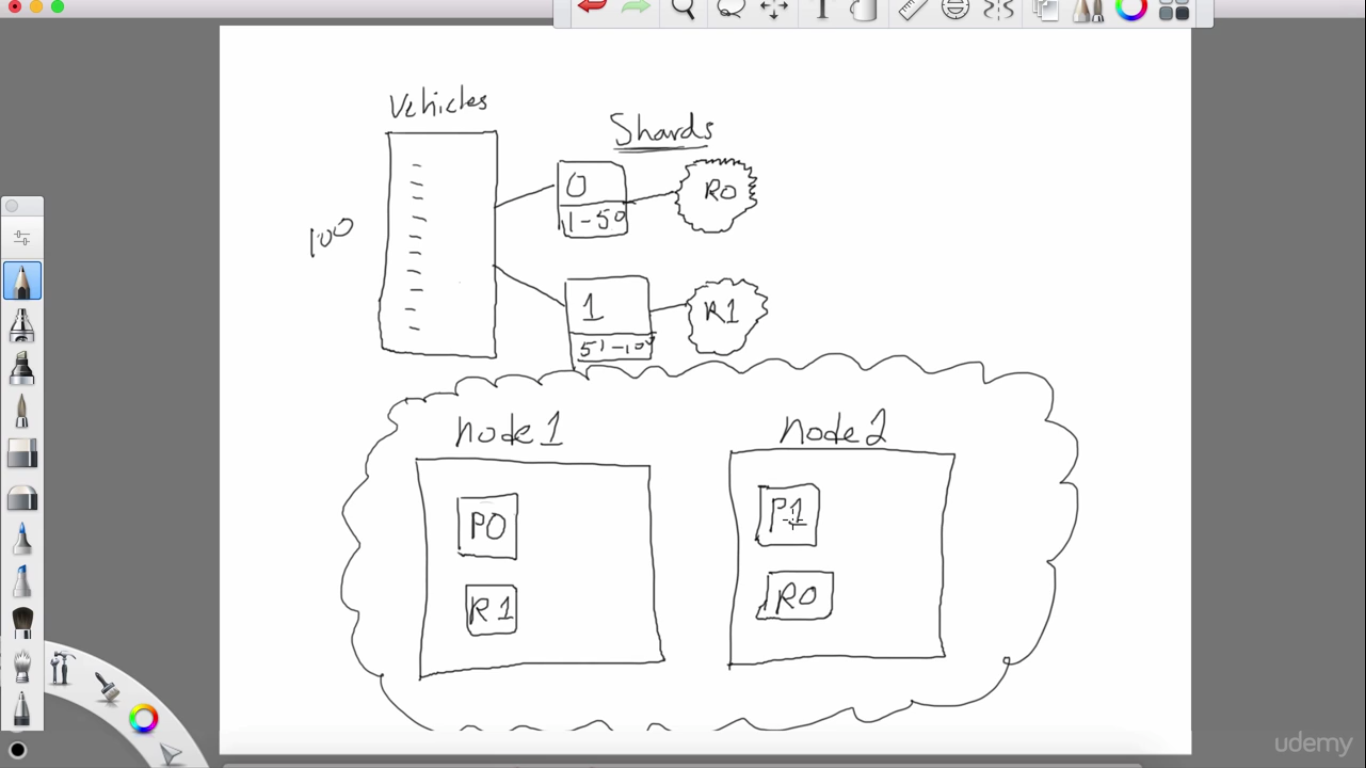 Vehicles
Shards
100
0
1-50
R0
1
51-100
R1
node1
node2
P0
R1
P1
R0
udemy